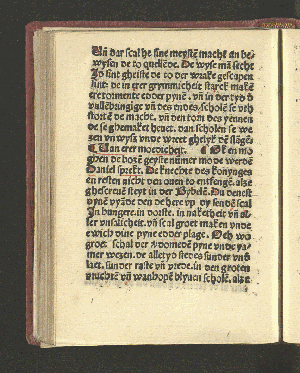 Uñ dar scal he sine meystē macht an be-
wysen de to quellēde. De wyse mā secht
Id sint gheiste de to der wrake gescapen
sint: de in erer grymmicheit starck makē
ere tormente edder pyne. vñ in der tyd d
vullēbringige vñ des endes, scholē se vth
stortē de macht. vñ den torn des yennen
de se ghemaket heuet. dan scholen se we
zen vñ wyß vnde wreet ghelyk dē slāgē
Van erer moetheit. Ok en mo
ghen de bozē geyste nūmer mode werdē
Daniel sprekt. De knechte des konynges
en resten nicht den ouen to entfengē. alze
ghescreuē steyt in der Bybelē. Du denest
dynē vyāde den de here vp dy senden scal
In hungere. in dorste. in naketheit vñ al-
ler vnsalicheit. vñ scal groet maken vnde
ewich dine pyne edder plage. Och wo
groet schal der vdomedē pyne vnde ya-
mer wezen. de alletyd stedes sunder vnd
laet. sunder raste vñ vrede. in den groten
vruchtē vñ wanhopē blyuen scholē. alze